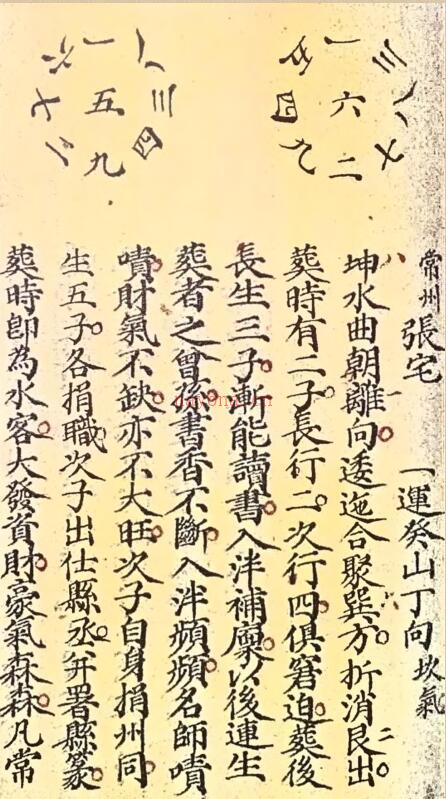 三
八
七
一
六
二
五
四
九
八
三
四
一
五
九
六
七
二
常州張宅 一運癸山丁向坎氣
八
一
六
二
坤水曲朝離向逶迤合聚巽方折消艮出
葬時有二子長行二次行四俱窘迫葬後
長生三子漸能讀書入泮補廩以後連生
葬者之曾孫書香不斷入泮頻頻名師嘖
嘖財氣不缺亦不大旺次子自身捐州同
生五子各捐職次子出仕縣丞并署縣篆
葬時即為水客大發資財豪氣森森凡常